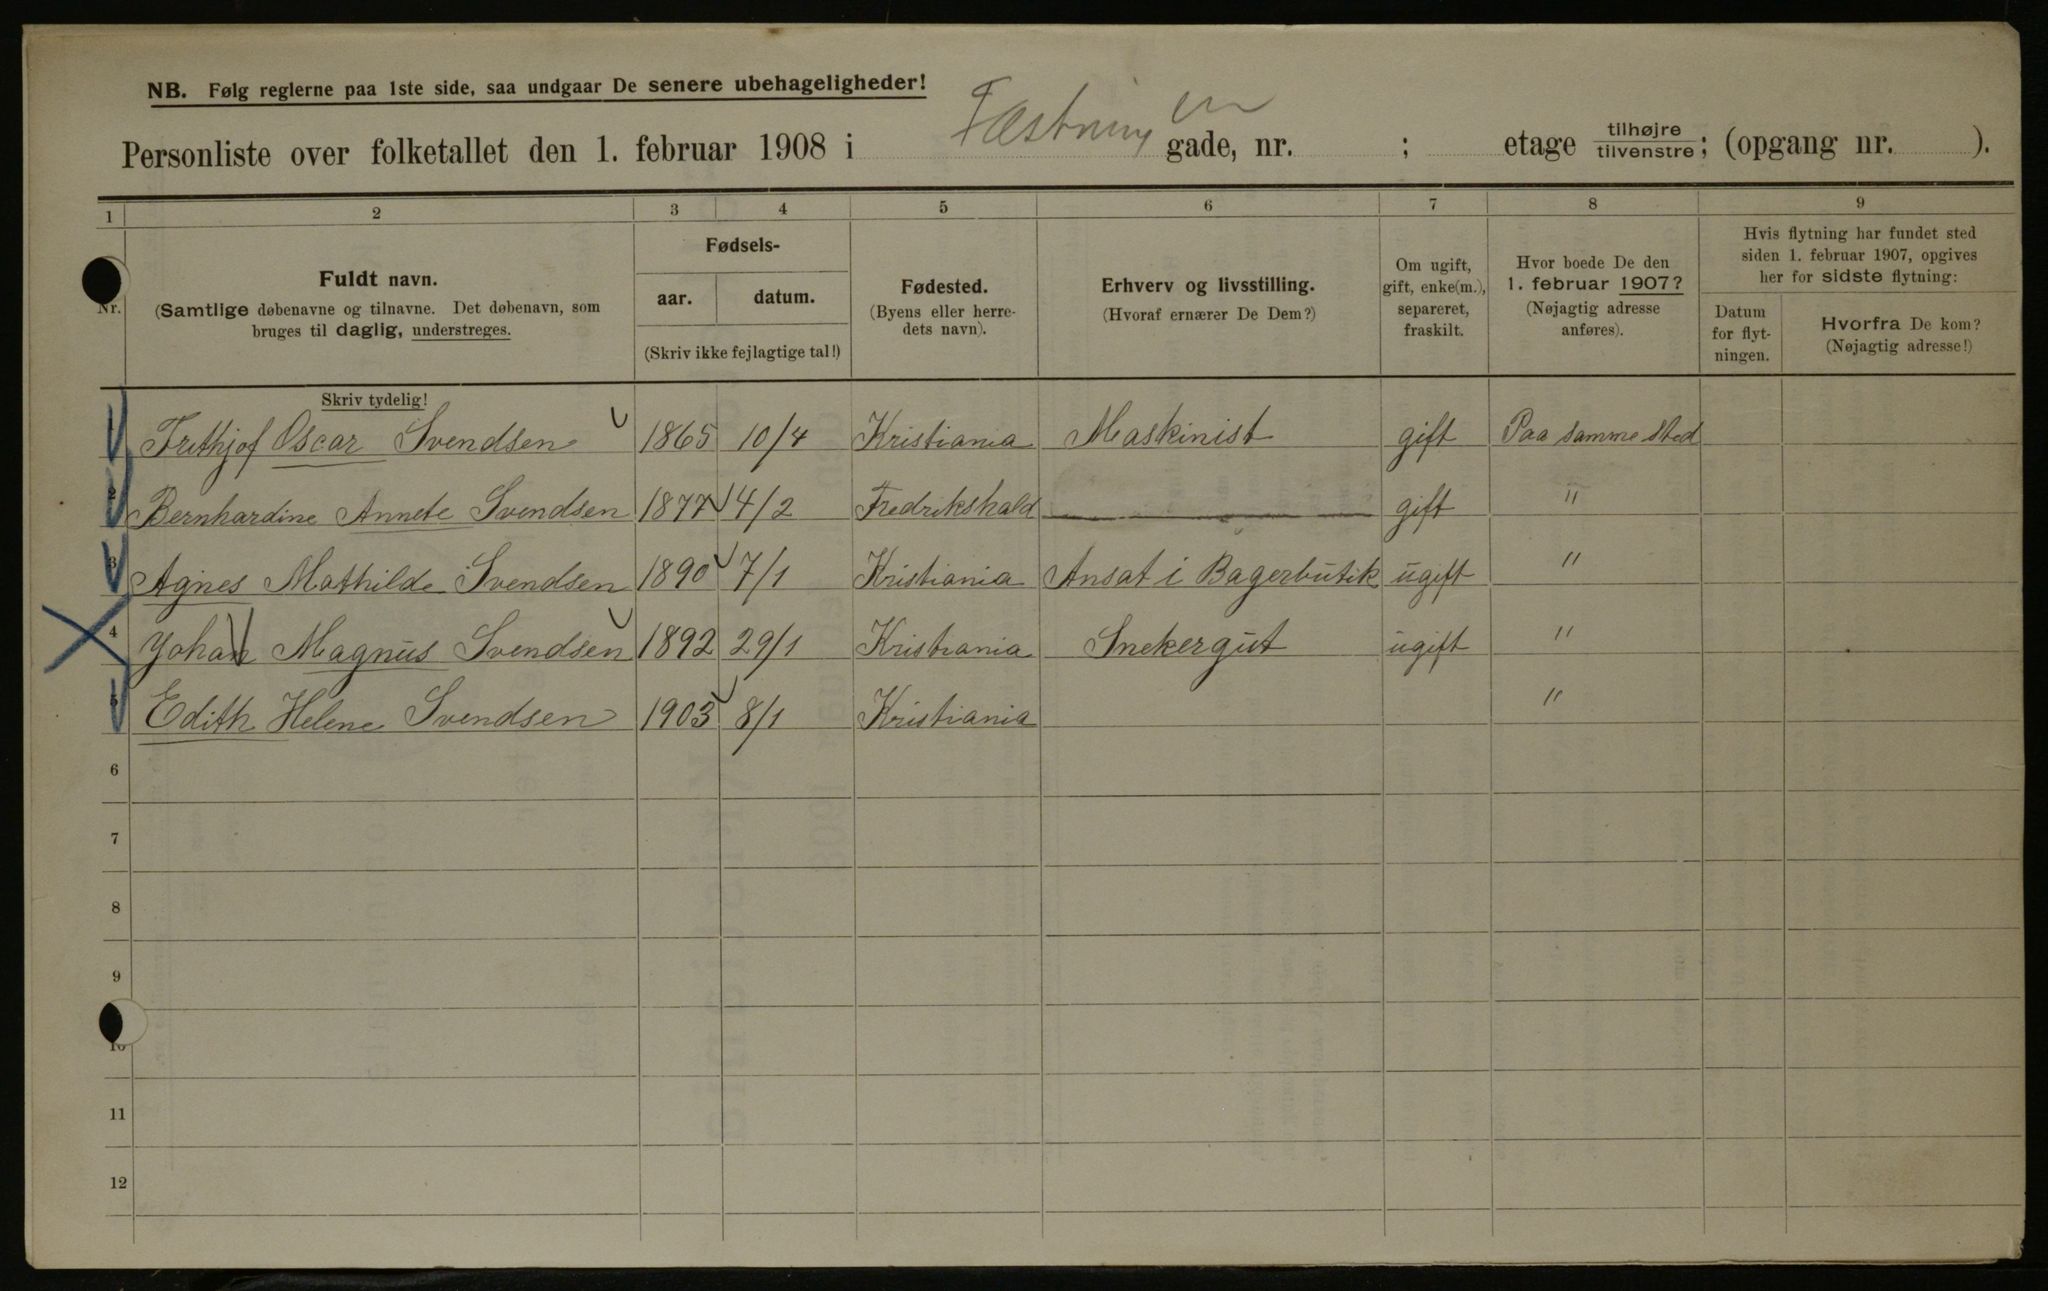 NB. Følg reglerne paa 1ste side, saa undgaar De senere ubehageligheder!
Personliste over folketallet den 1. februar 1908 i Fæstningen gade, nr. ; etage tilhøjre tilvenstre; (opgang nr. ).
1 2 3 4 5 6 7 8 9
Nr.
Fuldt navn.
(Samtlige døbenavne og tilnavne. Det døbenavn, som
bruges til daglig, understreges.
Fødsels-
aar. datum.
(Skriv ikke fejlagtige tal!)
Fødested.
(Byens eller herre-
dets navn).
Erhverv og livsstilling.
(Hvoraf ernærer De Dem?)
Om ugift,
gift, enke(m.),
separeret,
fraskilt.
Hvor boede De den
1. februar 1907?
(Nøjagtig adresse
anføres).
Hvis flytning har fundet sted
siden 1. februar 1907, opgives
her for sidste flytning:
Datum
for flyt-
ningen.
Hvorfra De kom?
(Nøjagtig adresse!)
Skriv tydelig!
1 Frithjof Oscar Svendsen 1865 10/4 Kristiania Maskinist gift Paa samme sted
2 Bernhardine Annete Svendsen 1877 4/2 Fredrikshald gift "
3 Agnes Mathilde Svendsen 1890 7/1 Kristiania Ansat i Bagerbutik ugift "
4 Yohan Magnus Svendsen 1892 29/1 Kristiania Snekergut ugift "
5 Edith Helene Svendsen 1903 8/1 Kristiania "
6
7
8
9
10
11
12